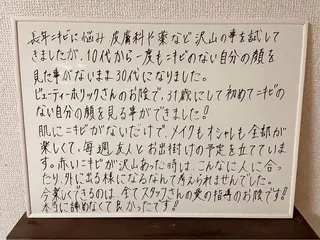 長年ニキビに悩み皮膚科や薬など沢山の事を試して
きましたが、10代から一度もニキビのない自分の顔を
見た事がないまま30代になりました。
ビューティーホリックさんのお陰で、31歳にして初めてニキビの
ない自分の顔を見る事ができました!
肌にニキビがないだけで、メイクもオシャレも全部が
楽しくて、毎週友人とお出掛けの予定を立てていま
す。赤いニキビが沢山あった時は、こんなに人に会っ
たり、外に出る様になるなんて考えられませんでした。
今楽しくできるのは、全てスタッフさんの愛の指導のお陰です!
本当に諦めなくて良かったです!!